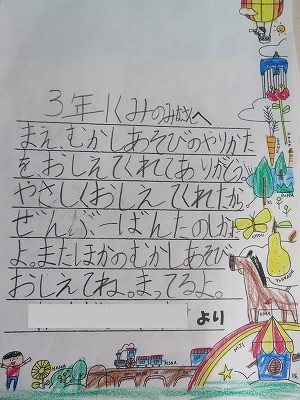 3年1くみのみなさんへ
まえ、むかしあそびのやりかた
を、おしえてくれてありがとう。
やさしくおしえてくれたから
ぜんぶ一ばんたのしかった
よ。またほかのむかしあそび
おしえてね。まってるよ。
より